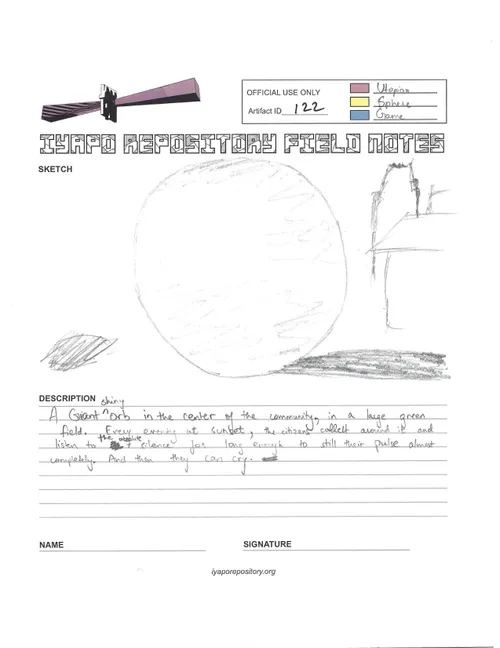 OFFICIAL USE ONLY
Artifact ID 122
Utopian
Sphere
Game
IYAPO REPOSITORY FIELD NOTES
SKETCH
DESCRIPTION
A Giant shiny Orb in the center of the community, in a large green
field. Every evening at sunset, the citizens collect around it and
listen to the absolute silence for long enough to still their pulse almost
completely. And then they can cry.
NAME
SIGNATURE
iyaporepository.org